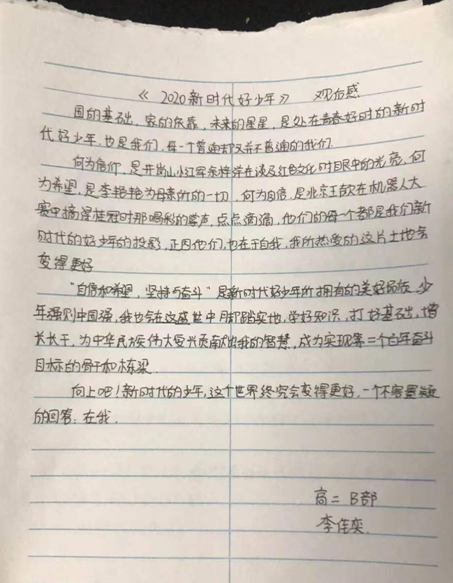 《2020新时代好少年》 观后感
国的基础，家的依靠，未来的星星，是处在青春好时的新时
代好少年，也是我们，每一个普通却又并不普通的我们
何为信仰，是开岗山小红军余梓洋在谈及红色文化时眼中的光亮，何
为希望，是李艳艳为母亲所的一切，何为自信，是北京王歆在机器人大
赛中摘得桂冠时那喝彩的掌声，点点滴滴，他们的每一个都是我们新
时代的好少年的投影，正因他们，也在于自我，我所热爱的这片土地会
变得更好
"自信和希望，坚持与奋斗"是新时代好少年所拥有的美好品质，少
年强则中国强，我也会在这盛世中月脚踏实地，学好知识，打好基础，增
长长干，为中华民族伟大复兴贡献我的智慧，成为实现第二个百年奋斗
目标的骨干和栋梁
向上吧！新时代的少年，这个世界终究会变得更好，一个不容置疑
的回答：在我．
高二 B部
李佳奕